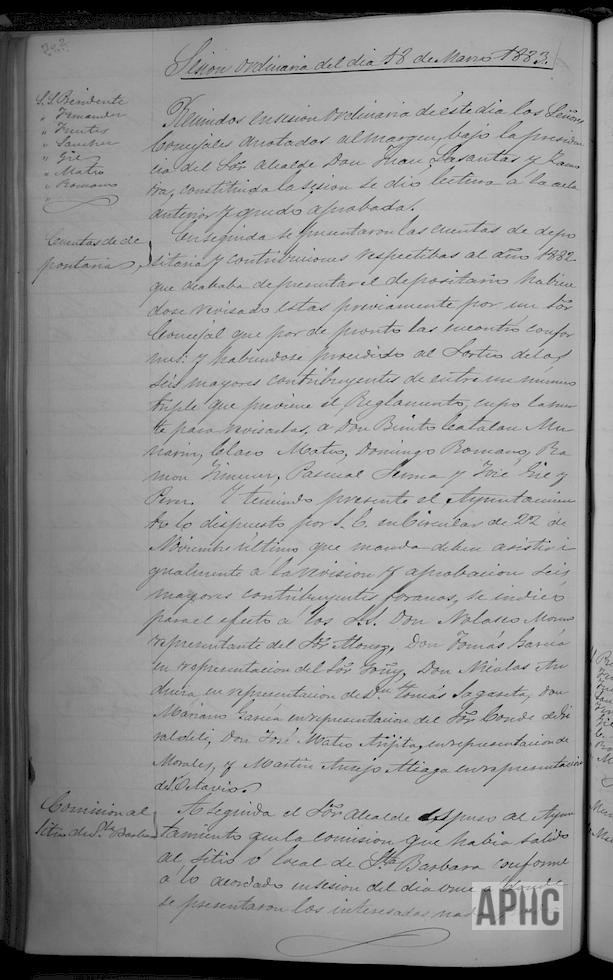 Sesion ordinaria del dia 18 de Marzo 1883.
S.S. Presidente
" Fernandez
" Fuertes
" Sanchez
" Gil
" Mateo
" Romano
"
Reunidos en sesion ordinaria de éste dia los Señores
Concejales anotados al margen, bajo la presiden
cia del Sor Alcalde Don Juan Lasantas y Zamo
ra, constituida la sesion se dio lectura á la acta
anterior y quedó aprobada.
Cuentas de de
positaria
Enseguida se presentaron las cuentas de depo
sitaria y contribuciones respectibas al año 1882
que acababa de presentar el depositario habien
dose revisado estas previamente por un Sor
Concejal que por de pronto las encontró confor
mes: y habiendose procedido al Sorteo de los
seis mayores contribuyentes de entre un numero
triple que previene el Reglamento, cupo la suer
te para revisarlas, a Don Benito Catalan Mu
narriz, Claro Mateo, Domingo Romano, Ra
mon Jimenez, Pascual Serma y José Gil y
Perez. Y teniendo presente el Ayuntamien
to lo dispuesto por S. E. en Circular de 22 de
Noviembre último que manda deben asistir i
gualmente á la revision y aprobacion seis
mayores contribuyentes foranos, se indicó
para el efecto á los S.S. Don Nolasco
representante del Sor Alonso, Don Tomás Garcia
en representacion del Sor Don Nicolas An
dueza en representacion de Dn Tomás Sagaseta, Don
Mariano Garcia en representacion del Sor Conde de
Don José Mateo en representacion de
Morales, y Martin Ansejo Aliaga en representacion
de Octavio.
Comision al
sitio de Sta Barbara
A seguida el Sor Alcalde espuso al Ayun
tamiento que la comision que habia salido
al sitio ó local de Sta Barbara conforme
á lo acordado en sesion del dia once á donde
se presentaron los interesados
APHC